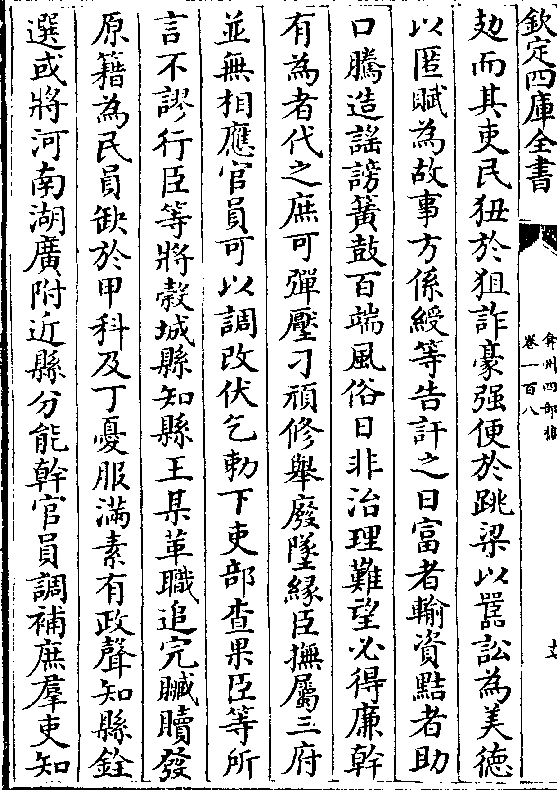 欽定四庫全書
弇州四部稿
卷一百八
劾而其吏民狃於狙詐豪强便於跳梁以嚚訟為美德
以匿賦為故事方係綬等告訐之日富者輸資黠者助
口騰造謡謗簧鼓百端風俗日非治理難望必得廉幹
有為者代之庶可彈壓刁頑修舉廢墜緣臣撫屬三府
並無相應官員可以調改伏乞勅下吏部查果臣等所
言不謬行臣等將榖城縣知縣王某革職追完贓贖發
原籍為民員缺於甲科及丁憂服滿素有政聲知縣銓
選或將河南湖廣附近縣分能幹官員調補庶羣吏知